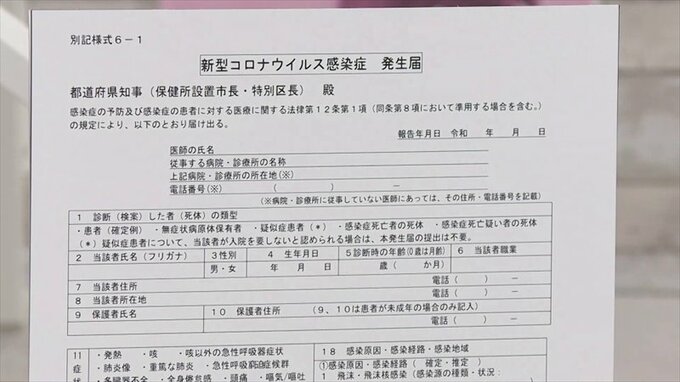 別記様式6-1
新型コロナウイルス感染症 発生届
都道府県知事（保健所設置市長・特別区長） 殿
感染症の予防及び感染症の患者に対する医療に関する法律第12条第1項（同条第8項において準用する場合を含む。）
の規定により、以下のとおり届け出る。
報告年月日 令和 年 月 日
医師の氏名
従事する病院・診療所の名称
上記病院・診療所の所在地(※)
電話番号(※) （ ） －
(※病院・診療所に従事していない医師にあっては、その住所・電話番号を記載)
1 診断（検案）した者（死体）の類型
・患者（確定例） ・無症状病原体保有者 ・疑似症患者（＊） ・感染症死亡者の死体 ・感染症死亡疑い者の死体
（＊）疑似症患者について、当該者が入院を要しないと認められる場合は、本発生届の提出は不要。
2 当該者氏名（フリガナ） 3性別 4 生年月日 5診断時の年齢(0歳は月齢) 6 当該者職業
男・女 年 月 日 歳 （ か月）
7 当該者住所 電話（ ） －
8 当該者所在地 電話（ ） －
9 保護者氏名 10 保護者住所 （9、10は患者が未成年の場合のみ記入）
電話（ ） －
11 ・発熱 ・咳 ・咳以外の急性呼吸器症状 18 感染原因・感染経路・感染地域
症 ・肺炎像 ・重篤な肺炎 ・急性呼吸窮迫症候群 ①感染原因・感染経路（ 確定・推定 ）
状 ・多臓器不全 ・全身倦怠感 ・頭痛 ・嘔気/嘔吐 1 飛沫・飛沫核感染（感染源の種類・状況：